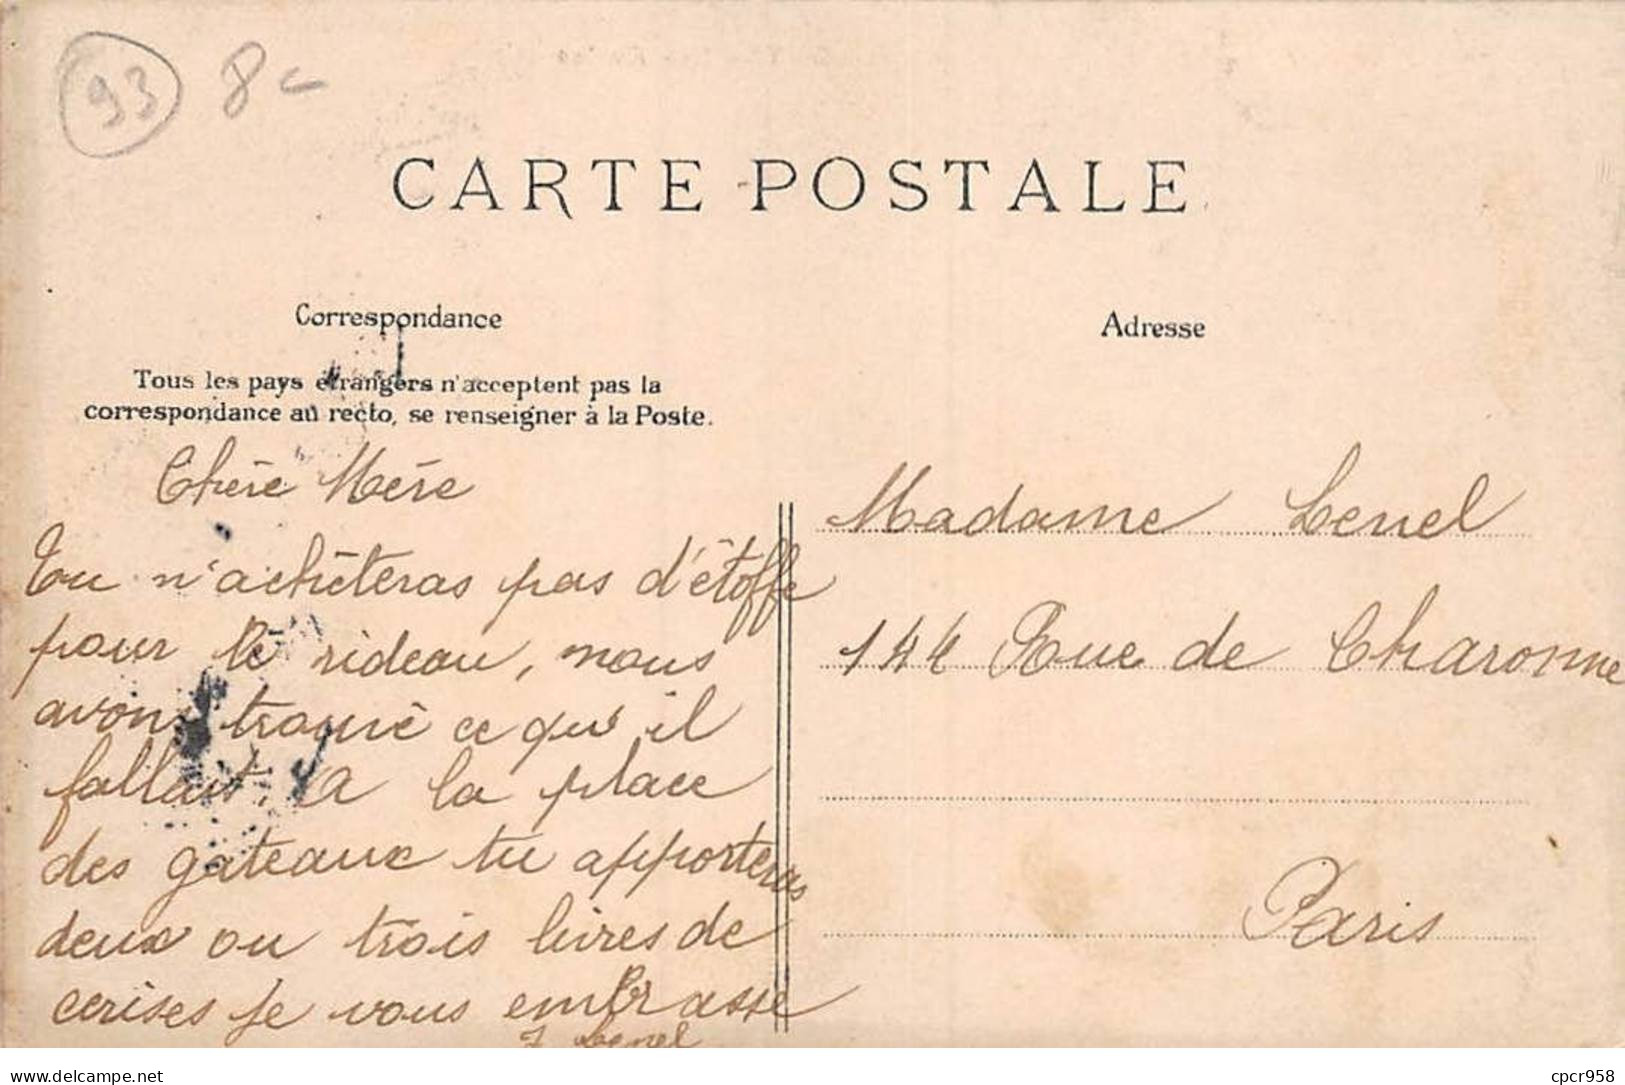 93 8
CARTE POSTALE
Correspondance
Adresse
Tous les pays étrangers n'acceptent pas la
correspondance au recto, se renseigner à la Poste.
Chère Mère
Tu n'achèteras pas d'étoffe
pour le rideau, nous
avons trouvé ce qu'il
fallait, a la place
des gateaux tu apporteras
deux ou trois livres de
cerises je vous embrasse
Lenel
Madame Lenel
144 Rue de Charonne
Paris
delcampe.net
cpcr958